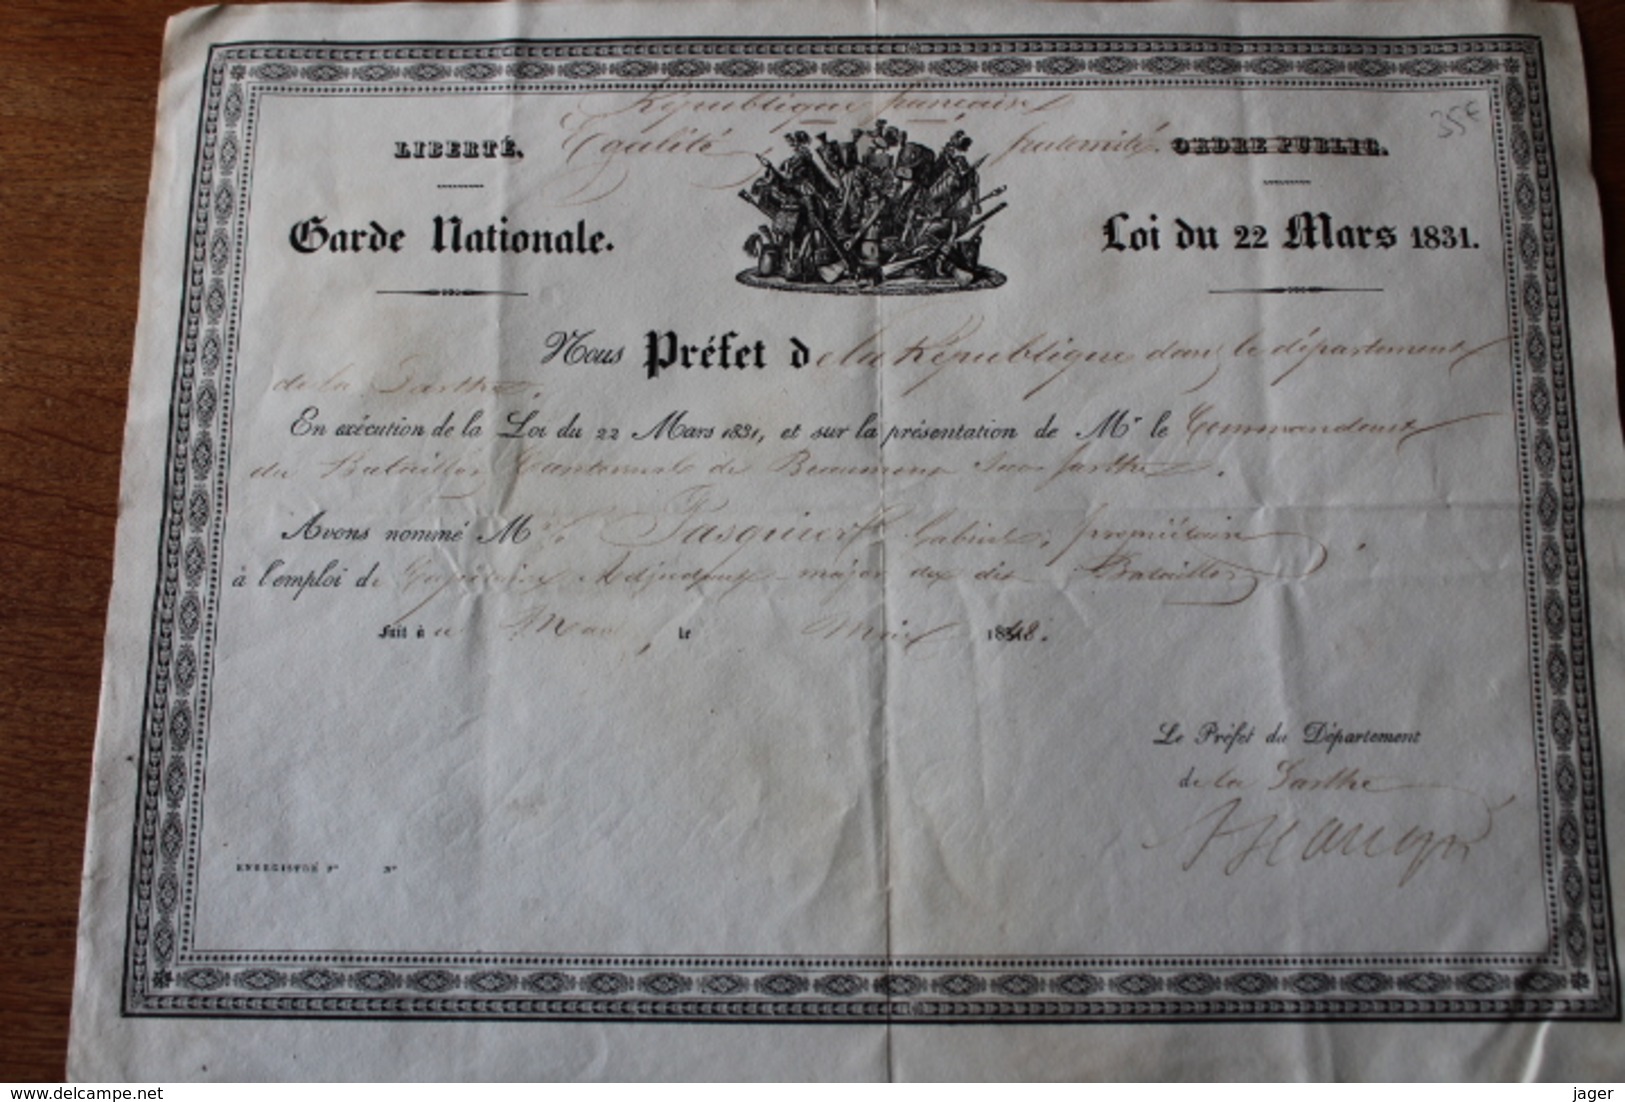 République française
LIBERTÉ, Egalité, fraternité. ORDRE PUBLIC.
35€
Garde Nationale. Loi du 22 Mars 1831.
Nous Préfet de la République dans le département
de la Sarthe,
En exécution de la Loi du 22 Mars 1831, et sur la présentation de Mr le Commandant
du Bataillon Cantonnal de Beaumont sur Sarthe.
Avons nommé Mr Pasquier Gabriel, propriétaire,
à l'emploi de Capitaine Adjudant-major du dit Bataillon
Fait à au Mans, le Mai 1848.
Le Préfet du Département
de la Sarthe
ENREGISTRÉ Fo No
delcampe.net
jager